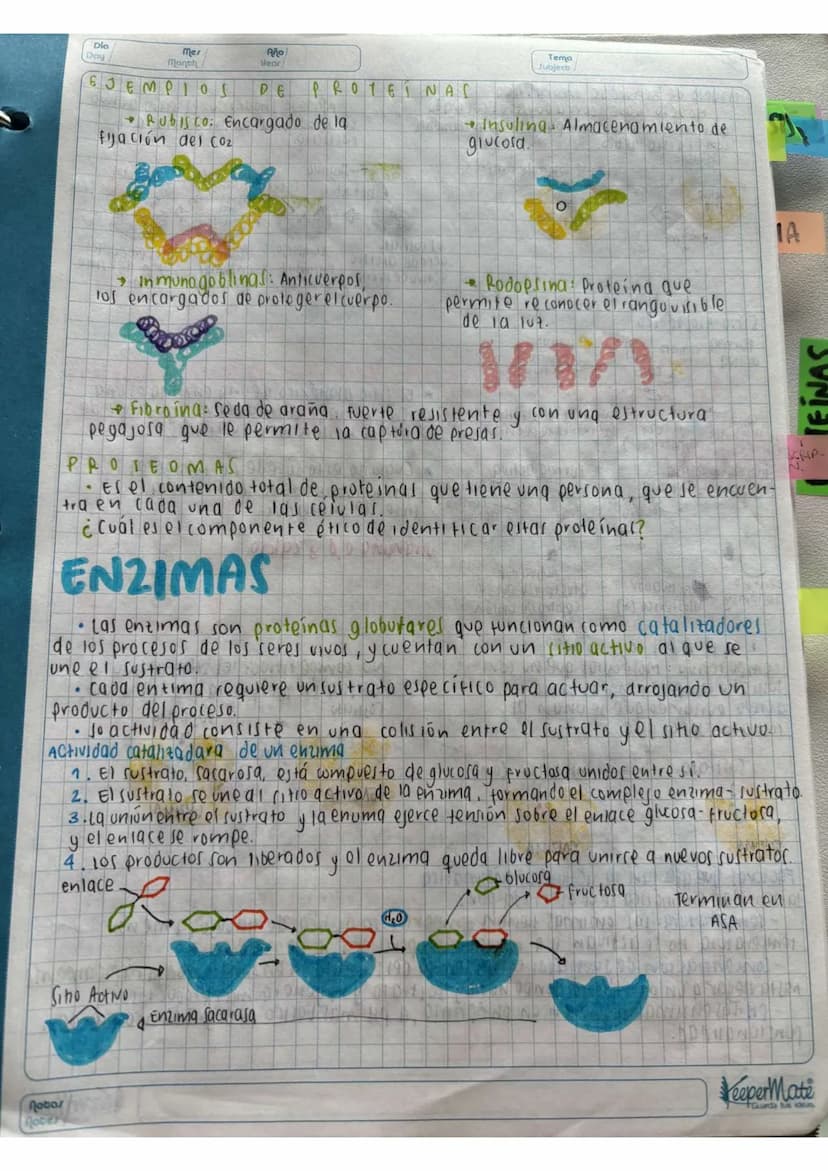 Día
Day
Mes
Month
Año
Year
Tema
Subject
EJEMPLOS DE PROTEÍNAS
→ Rubisco: Encargado de la
fijación del CO2
→ Insulina: Almacenamiento de
glucosa.
→ Inmunogoblinas: Anticuerpos,
los encargados de proteger el cuerpo.
→ Rodopsina: Proteína que
permite reconocer el rango visible
de la luz.
→ Fibroína: Seda de araña, fuerte resistente y con una estructura
pegajosa que le permite la captura de presas.
PROTEOMAS
• Es el contenido total de proteínas que tiene una persona, que se encuen-
tra en cada una de las células.
¿Cuál es el componente ético de identificar estas proteínas?
ENZIMAS
• Las enzimas son proteínas globulares que funcionan como catalizadores
de los procesos de los seres vivos, y cuentan con un sitio activo al que se
une el sustrato.
• Cada enzima requiere un sustrato específico para actuar, arrojando un
producto del proceso.
• Su actividad consiste en una colisión entre el sustrato y el sitio activo.
Actividad catalizadara de un enzima
1. El sustrato, sacarosa, está compuesto de glucosa y fructosa unidos entre sí.
2. El sustrato se une al sitio activo de la enzima, formando el complejo enzima-sustrato.
3. La unión entre el sustrato y la enzima ejerce tensión sobre el enlace glucosa-fructosa,
y el enlace se rompe.
4. Los productos son liberados y el enzima queda libre para unirse a nuevos sustratos.
enlace
Glucosa
Fructosa
Terminan en
ASA
H2O
Sitio Activo
Enzima sacarasa
Notas
Notes
KeeperMate
Guarda tus ideas
EÍNAS
IA